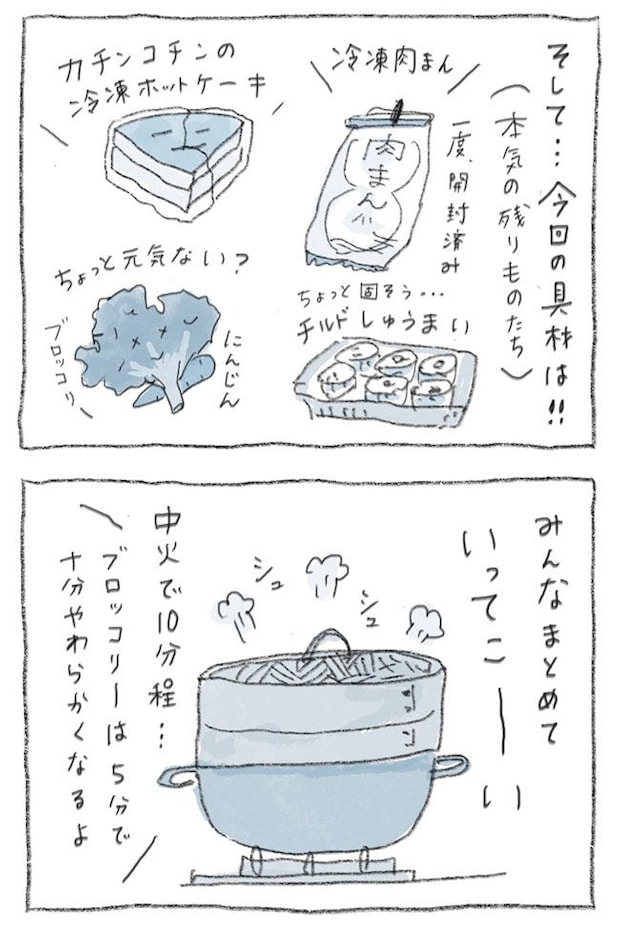 そして…今回の具材は!!
(本気の残りものたち)
冷凍肉まん
一度、開封済み
肉まん
カチンコチンの
冷凍ホットケーキ
ちょっと固そう…
チルドしゅうまい
ちょっと元気ない?
にんじん
ブロッコリ
みんなまとめて
いってこーーい
シュ
シュ
中火で10分程…
ブロッコリーは5分で
十分やわらかくなるよ